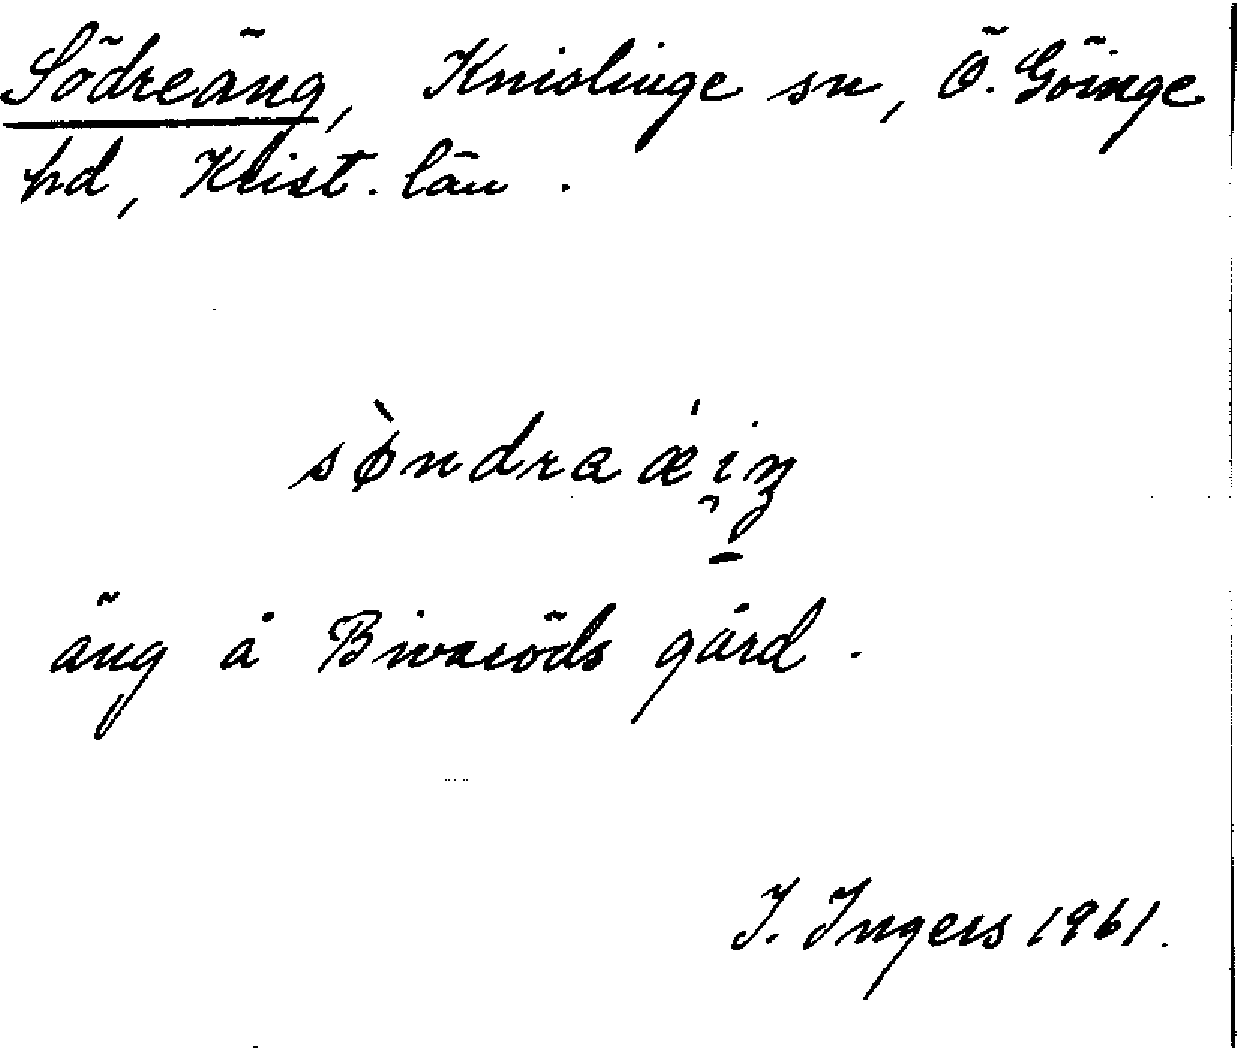 Södreäng, Knislinge sn, Ö. Göinge
hd, Krist. län.
søndraæiŋ
äng å Bivaröds gård.
I. Ingers 1961.